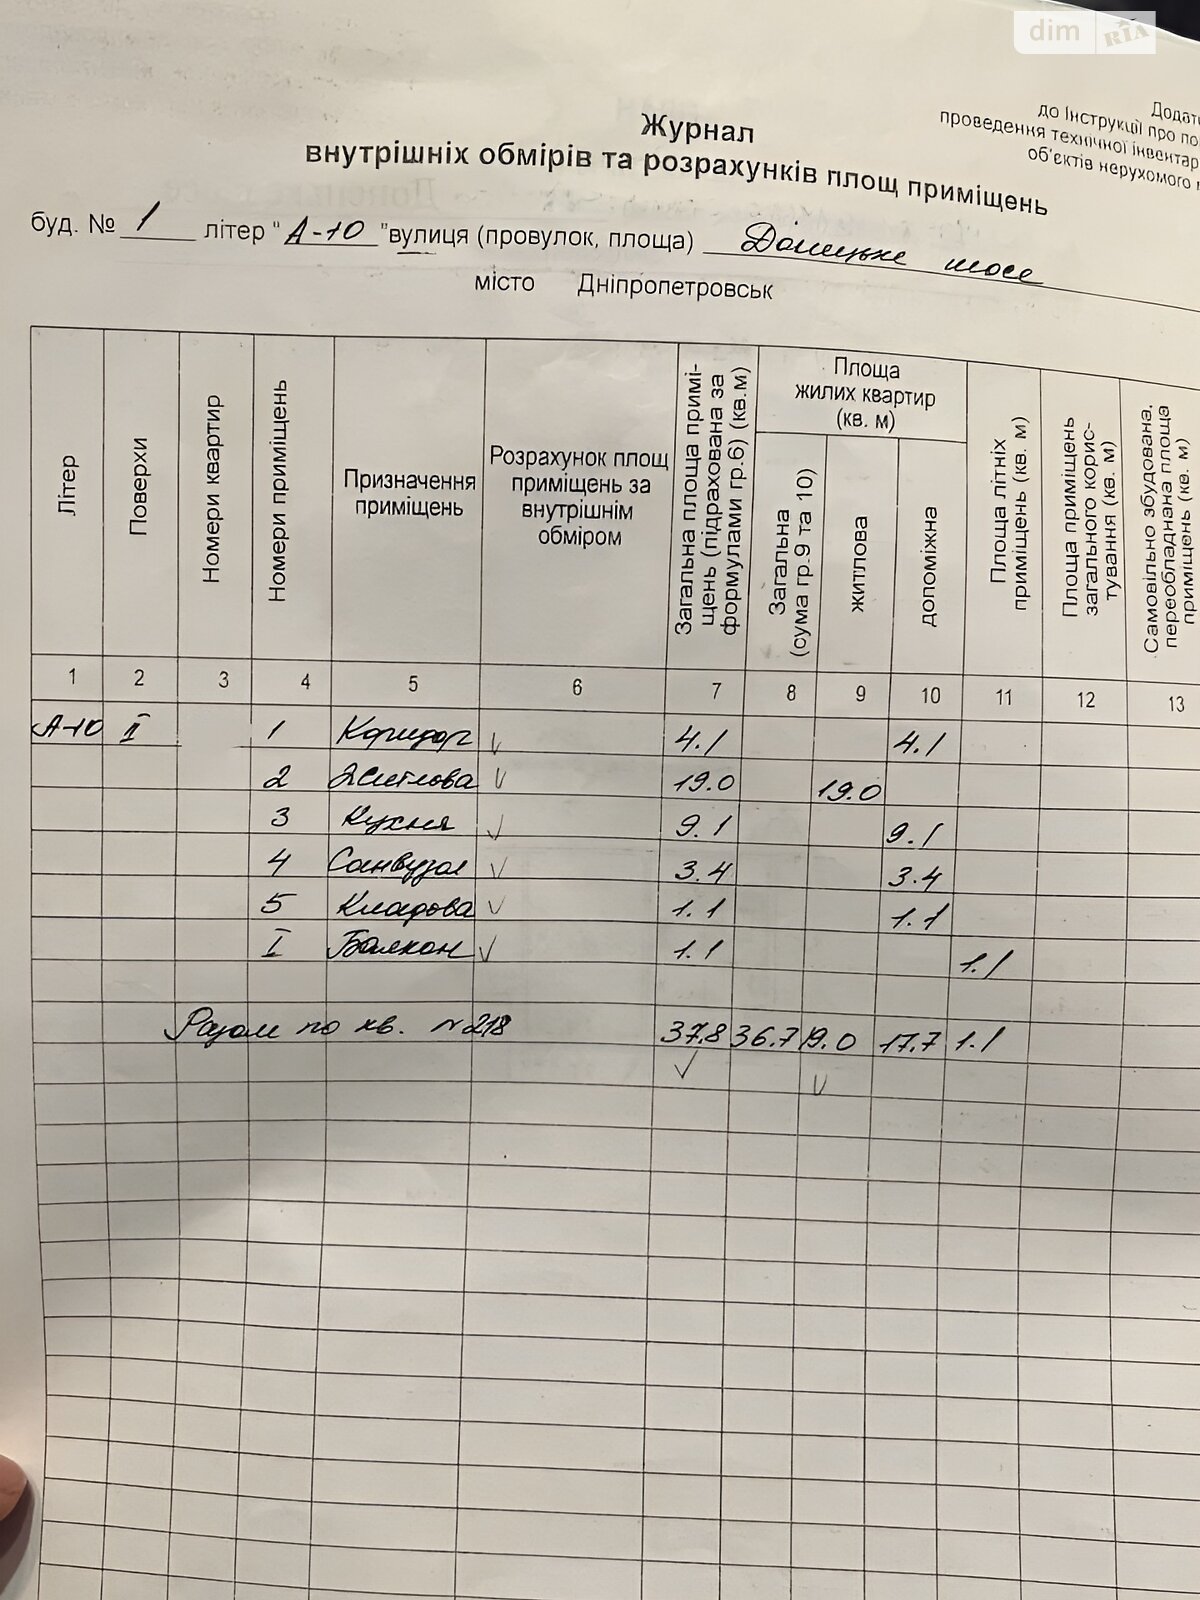 dim RIA
до Інструкції про по
проведення технічної інвентар
об'єктів нерухомого
Журнал
внутрішніх обмірів та розрахунків площ приміщень
буд. № 1 літер "А-10" вулиця (провулок, площа) Донецьке шосе
місто Дніпропетровськ
Літер
Поверхи
Номери квартир
Номери приміщень
Призначення
приміщень
Розрахунок площ
приміщень за
внутрішнім
обміром
Загальна площа примі-
щень (підрахована за
формулами гр.6) (кв.м)
Площа
жилих квартир
(кв. м)
Загальна
(сума гр.9 та 10)
житлова
допоміжна
Площа літніх
приміщень (кв. м)
Площа приміщень
загального корис-
тування (кв. м)
Самовільно збудована,
переобладнана площа
приміщень (кв. м)
1 2 3 4 5 6 7 8 9 10 11 12 13
А-10 II 1 Коридор 4.1 4.1
2 Житлова 19.0 19.0
3 Кухня 9.1 9.1
4 Санвузол 3.4 3.4
5 Кладова 1.1 1.1
I Балкон 1.1 1.1
Разом по кв. №218 37.8 36.7 19.0 17.7 1.1